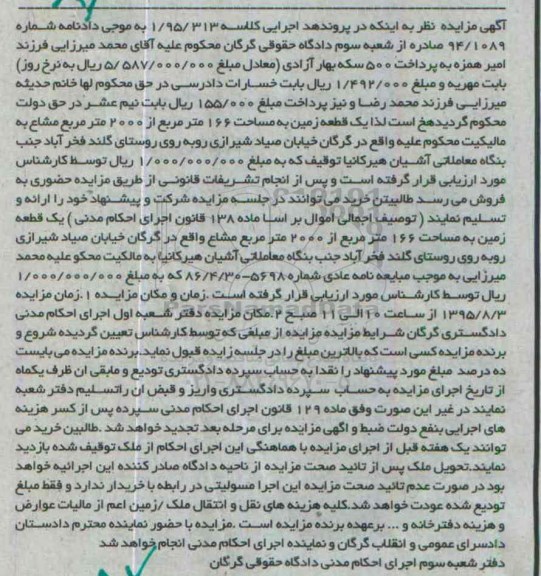 آگهی مزایده نظر به اینکه در پروندهد اجرایی کلاسه ۱/۹۵/۳۱۳ به موجی دادنامه شماره
۹۴/۱۰۸۹ صادره از شعبه سوم دادگاه حقوقی گرگان محکوم علیه آقای محمد میرزایی فرزند
امیر همزه به پرداخت ۵۰۰ سکه بهار آزادی (معادل مبلغ ۵/۵۸۷/۰۰۰/۰۰۰ ریال به نرخ روز)
بابت مهریه و مبلغ ۱/۴۹۲/۰۰۰ ریال بابت خسارات دادرسی در حق محکوم لها خانم حدیثه
میرزایی فرزند محمد رضا و نیز پرداخت مبلغ ۱۵۵/۰۰۰ ریال بابت نیم عشر در حق دولت
محکوم گردیدهخ است لذا یک قطعه زمین به مساحت ۱۶۶ متر مربع از ۲۰۰۰ متر مربع مشاع به
مالیکیت محکوم علیه واقع در گرگان خیابان صیاد شیرازی روبه روی روستای گلند فخر آباد جنب
بنگاه معاملاتی آشیان هیرکانیا توقیف که به مبلغ ۱/۰۰۰/۰۰۰/۰۰۰ ریال توسط کارشناس
مورد ارزیابی قرار گرفته است و پس از انجام تشریفات قانونی از طریق مزایده حضوری به
فروش می رسد طالبیتن خرید می توانند در جلسه مزایده شرکت و پیشنهاد خود را ارائه و
تسلیم نمایند ( توصیف اجمالی اموال بر اسا ماده ۱۳۸ قانون اجرای احکام مدنی ) یک قطعه
زمین به مساحت ۱۶۶ متر مربع از ۲۰۰۰ متر مربع مشاع واقع در گرگان خیابان صیاد شیرازی
روبه روی روستای گلند فخر آباد جنب بنگاه معاملاتی آشیان هیرکانیا به مالکیت محکو علیه محمد
میرزایی به موجب مبایعه نامه عادی شماره ۵۶۹۸-۸۶/۴/۳۰ که به مبلغ ۱/۰۰۰/۰۰۰/۰۰۰
ریال توسط کارشناس مورد ارزیابی قرار گرفته است .زمان و مکان مزایده ۱.زمان مزایده
۱۳۹۵/۸/۳ از ساعت ۱۰ الی ۱۱ صبح ۲.مکان مزایده دفتر شعبه اول اجرای احکام مدنی
دادگستری گرگان شرایط مزایده مزایده از مبلغی که توسط کارشناس تعیین گردیده شروع و
برنده مزایده کسی است که بالاترین مبلغ را در جلسه زایده قبول نماید.برنده مزایده می بایست
ده درصد مبلغ مورد پیشنهاد را نقدا به حساب سپرده دادگستری تودیع و مابقی ان ظرف یکماه
از تاریخ اجرای مزایده به حساب سپرده دادگستری واریز و قبض ان راتسلیم دفتر شعبه
نمایند در غیر این صورت وفق ماده ۱۲۹ قانون اجرای احکام مدنی سپرده پس از کسر هزینه
های اجرایی بنفع دولت ضبط و اگهی مزایده برای مرحله بعد تجدید خواهد شد .طالبین خرید می
توانند یک هفته قبل از اجرای مزایده با هماهنگی این اجرای احکام از ملک توقیف شده بازدید
نمایند.تحویل ملک پس از تائید صحت مزایده از ناحیه دادگاه صادر کننده این اجرائیه خواهد
بود در صورت عدم تائید صحت مزایده این اجرا مسولیتی در رابطه با خریدار ندارد و فقط مبلغ
تودیع شده عودت خواهد شد.کلیه هزینه های نقل و انتقال ملک /زمین اعم از مالیات عوارض
و هزینه دفترخانه و ... برعهده برنده مزایده است .مزایده با حضور نماینده محترم دادستان
دادسرای عمومی و انقلاب گرگان و نماینده اجرای احکام مدنی انجام خواهد شد
دفتر شعبه سوم اجرای احکام مدنی دادگاه حقوقی گرگان